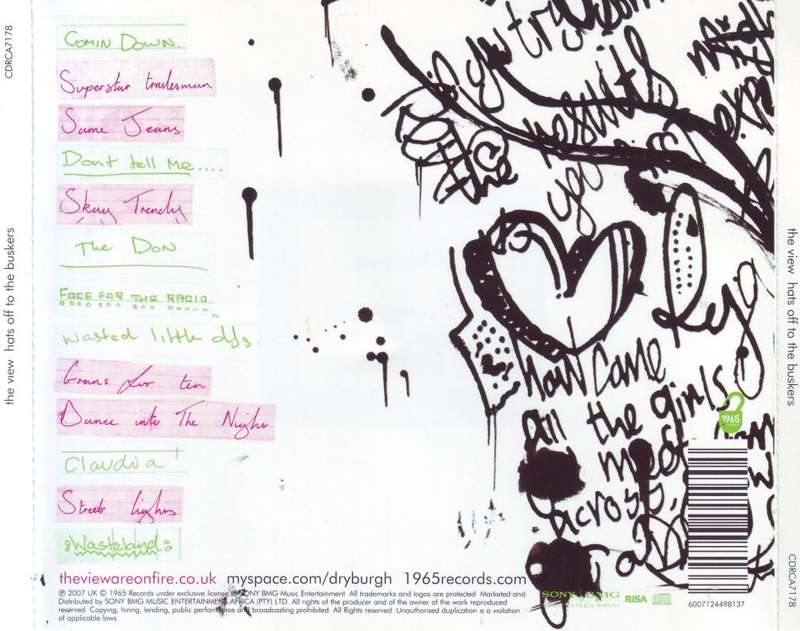 CDRCA7178
the view hats off to the buskers
Comin Down.
Superstar tradesman
Same Jeans
Dont tell Me....
Skag Trendy
The Don
FACE FOR THE RADIO
wasted little djs
Grans for ten
Dance into The Night
Claudia
Street lights
Wasteland
if you try
the results
you
exp
Rego
how come
all the girls
meet
across
1965
theviewareonfire.co.uk myspace.com/dryburgh 1965records.com
℗ 2007 UK © 1965 Records under exclusive license to SONY BMG Music Entertainment. All trademarks and logos are protected. Marketed and
Distributed by SONY BMG MUSIC ENTERTAINMENT AFRICA (PTY) LTD. All rights of the producer and of the owner of the work reproduced
reserved. Copying, hiring, lending, public performance and broadcasting prohibited. All Rights Reserved. Unauthorised duplication is a violation
of applicable laws.
SONY BMG
MUSIC ENTERTAINMENT
RiSA
6007124498137
the view hats off to the buskers
CDRCA7178